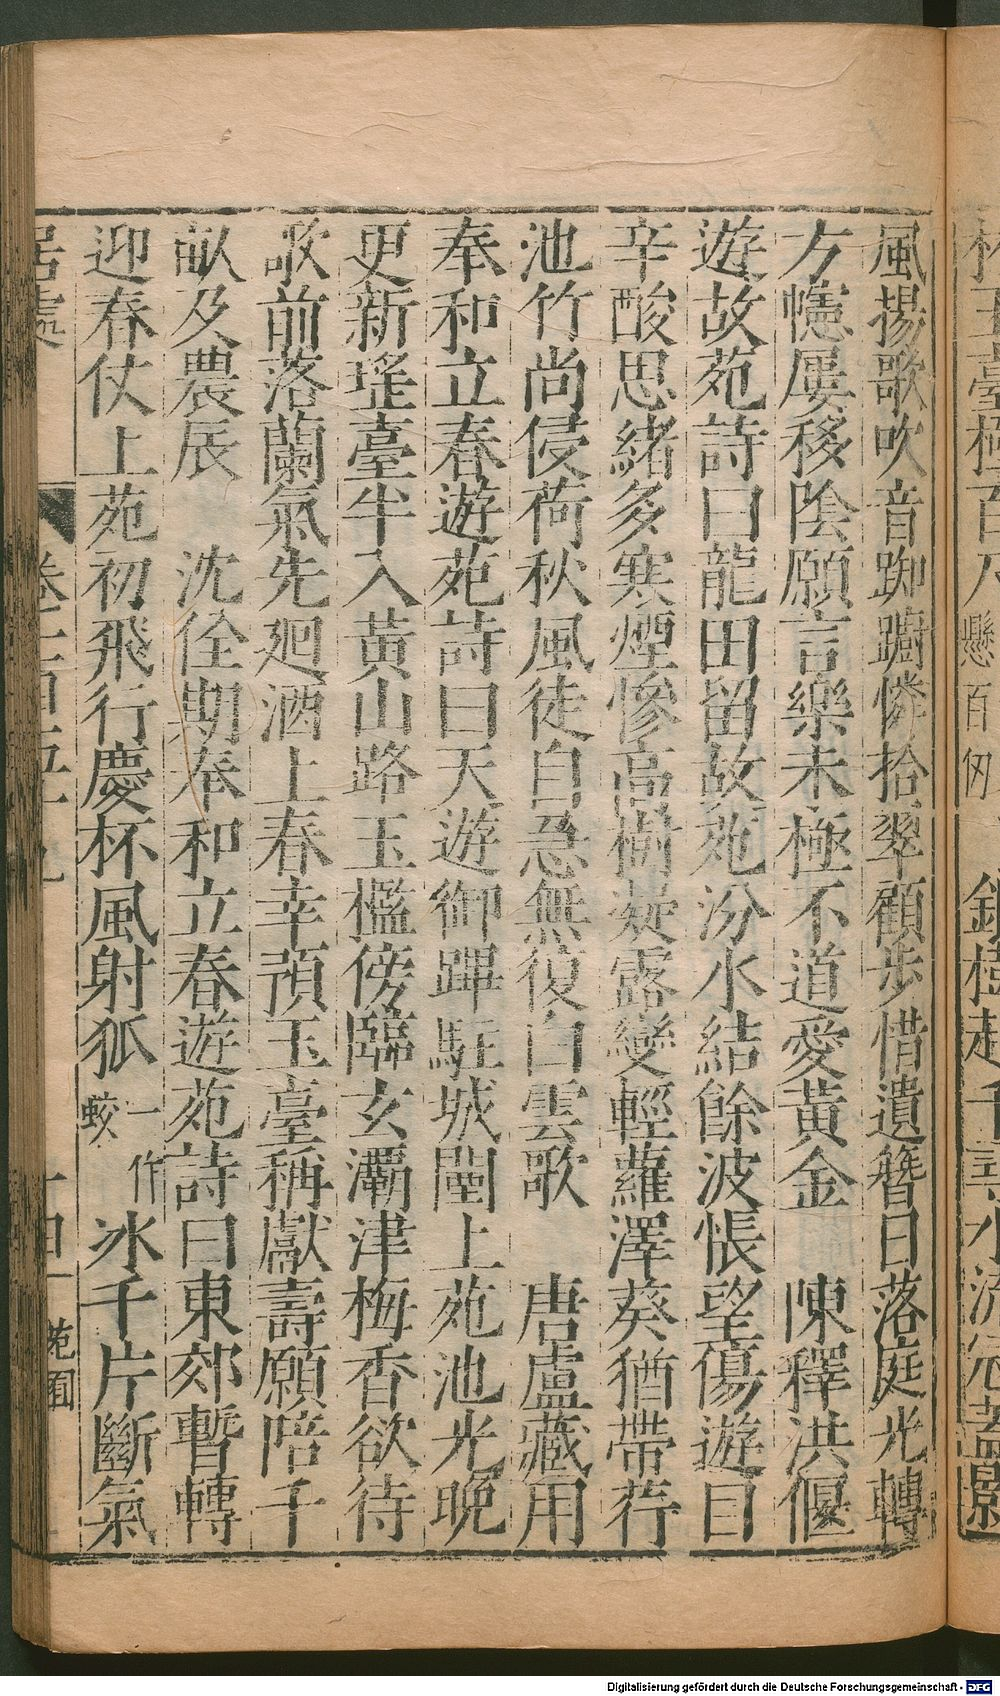 風揚歌吹音踟躕憐拾翠顧步惜遺簪日落庭光轉
方幰屢移陰願言樂未極不道愛黃金　陳釋洪偃
遊故苑詩曰龍田留故苑汾水結餘波悵望傷遊目
辛酸思緒多寒煙慘高樹凝露變輕蘿澤葵猶帶荇
池竹尚侵荷秋風徒自急無復白雲歌　唐盧藏用
奉和立春遊苑詩曰天遊御蹕駐城闉上苑池光晚
更新瑤臺半入黃山路玉檻傍臨玄灞津梅香欲待
歌前落蘭氣先迴酒上春幸預玉臺稱獻壽願陪千
畝及農辰　沈佺期奉和立春遊苑詩曰東郊暫轉
迎春仗上苑初飛行慶杯風射狐一作蛟冰千片斷氣
居處　卷二百五十九　十四　苑囿
銀樹起千尋水流冠蓋影
Digitalisierung gefördert durch die Deutsche Forschungsgemeinschaft - DFG